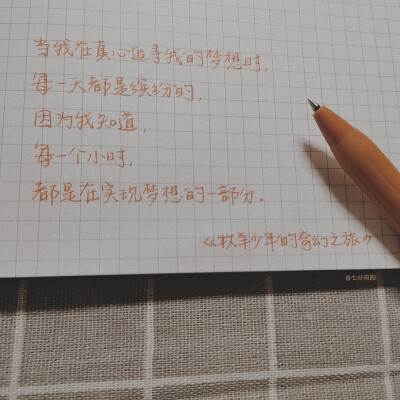 当我在真心追寻我的梦想时，
每一天都是缤纷的，
因为我知道，
每一个小时，
都是在实现梦想的一部分。
《牧羊少年的奇幻之旅》
@七分向阳